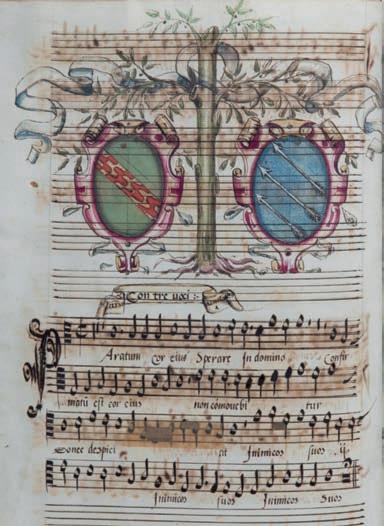 Con tre voci :
Paratum cor eius Sperare In domino Confir
matu est cor eius non comouebi tur
Donec despici at Inimicos suos ij
Inimicos suos Inimicos suos